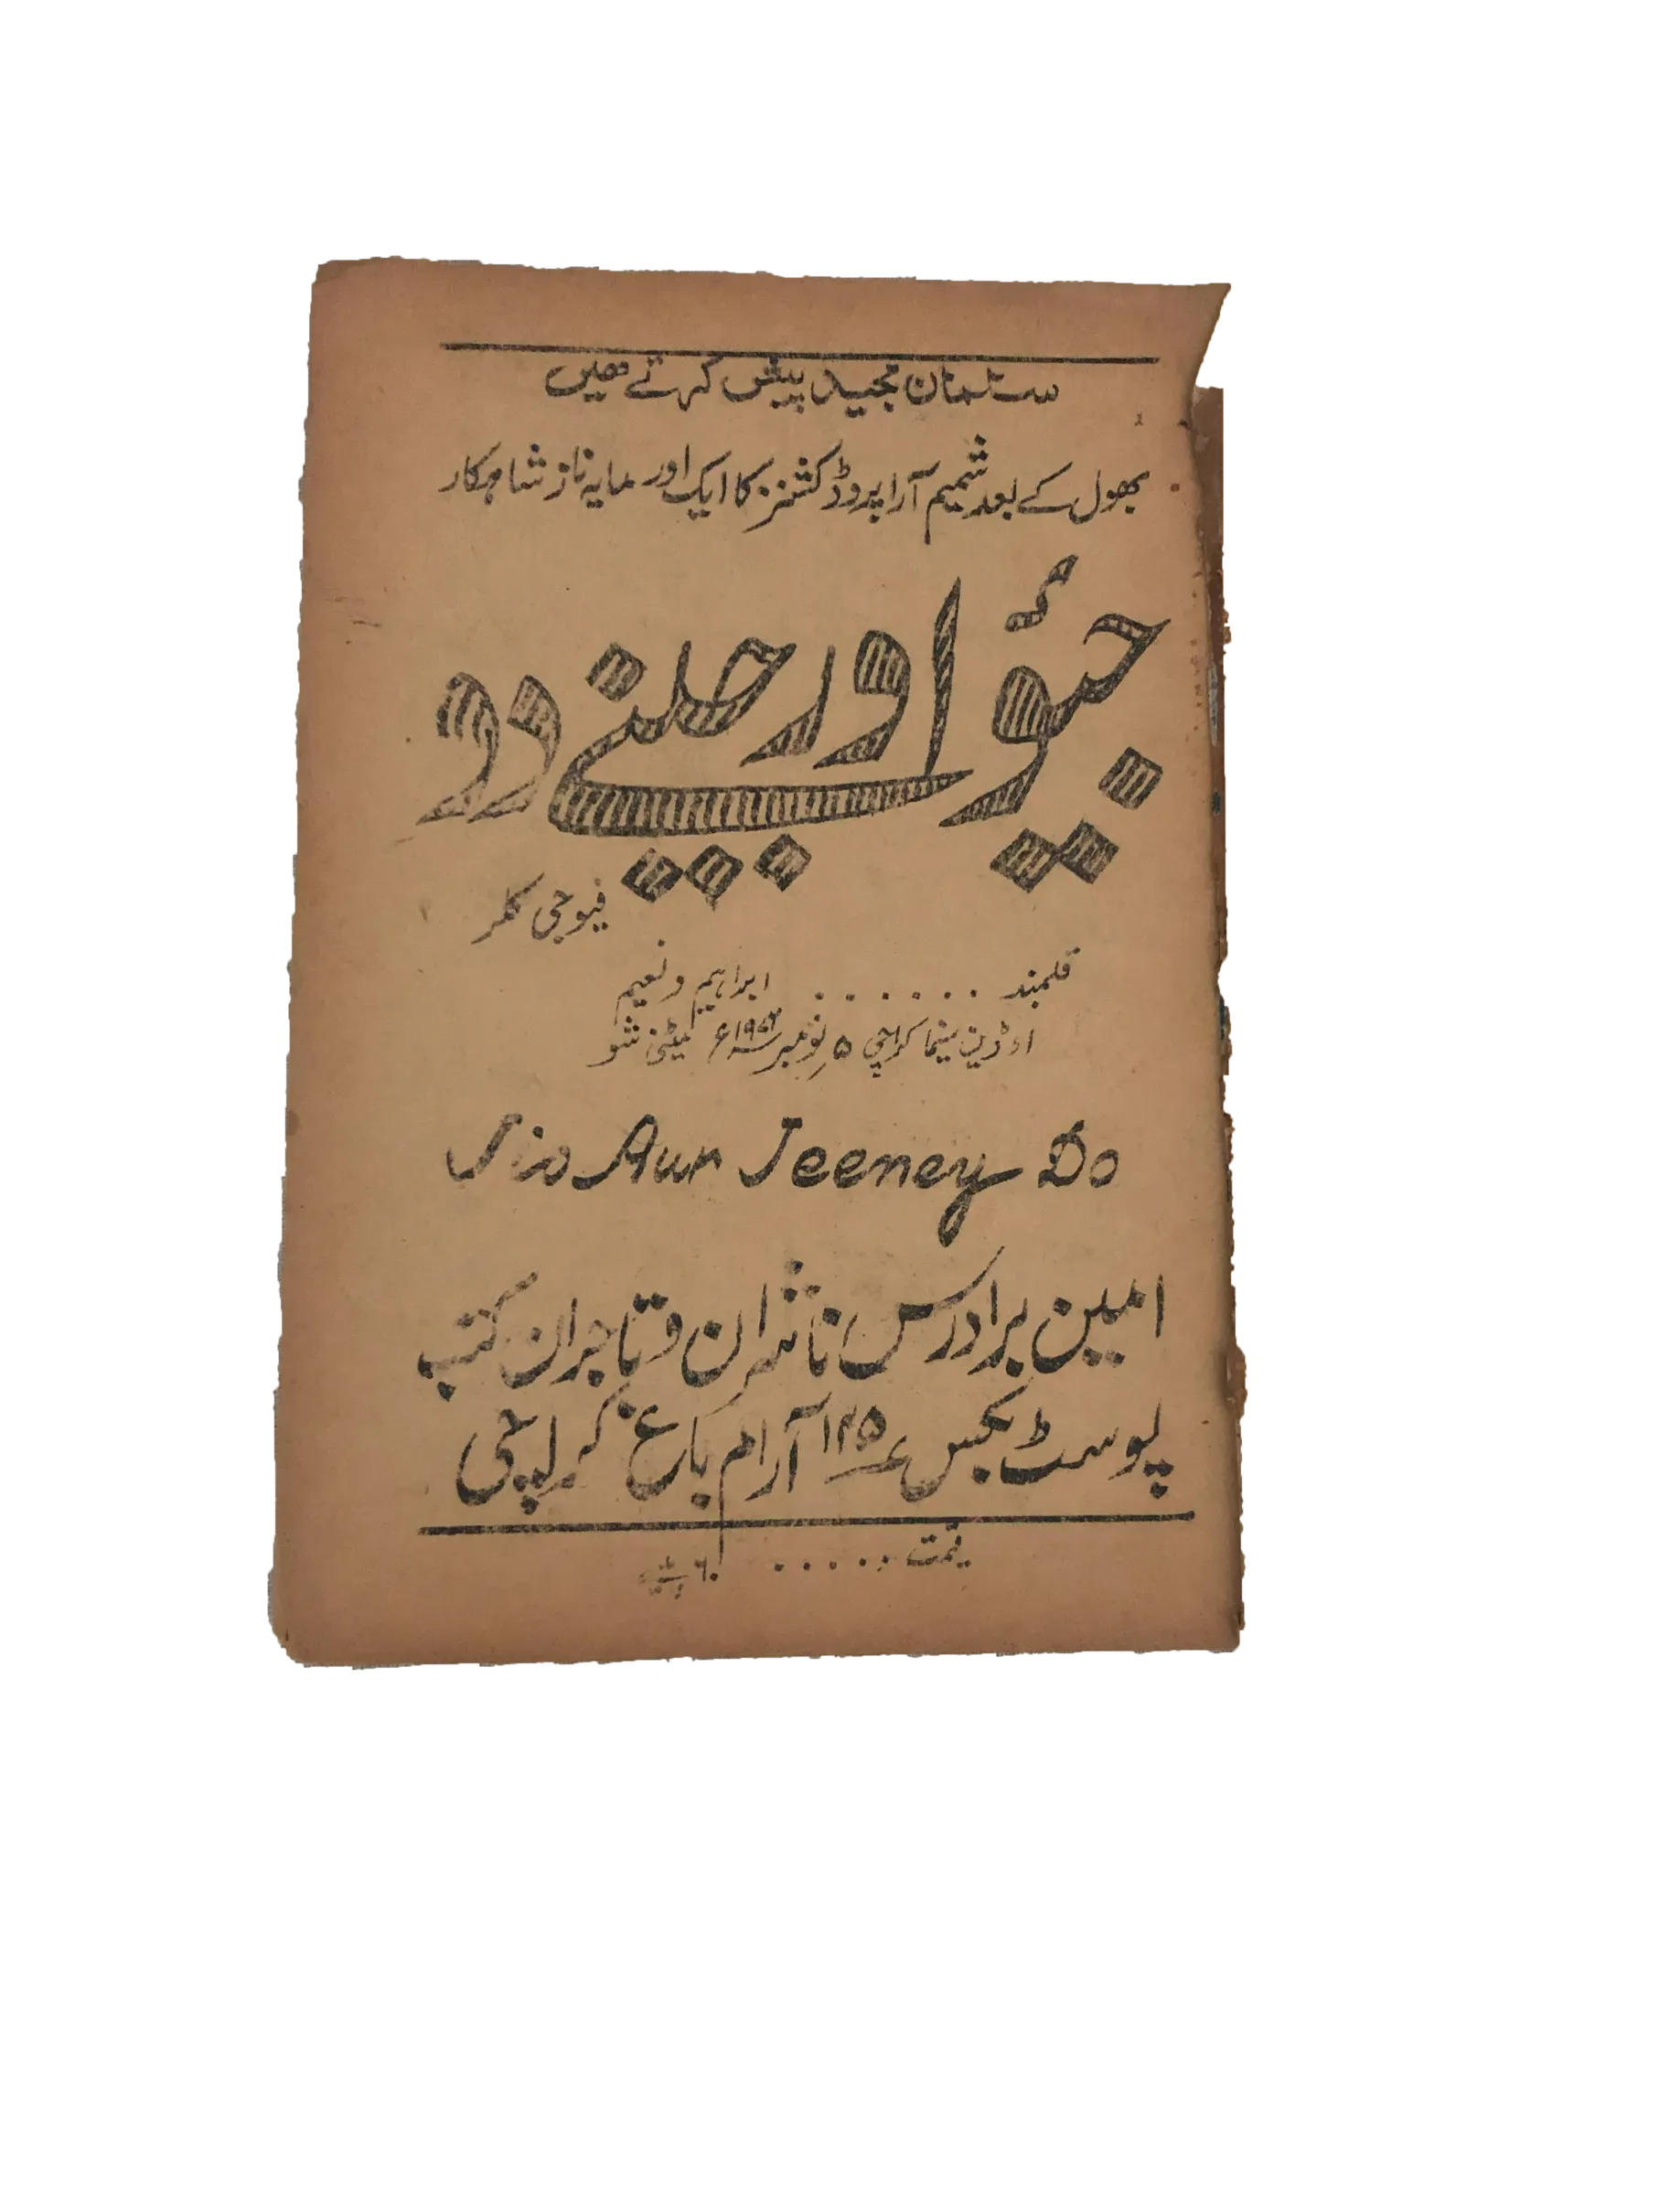 سلمان مجید پیش کرتے ھیں
بھول کے بعد شمیم آرا پروڈکشنز کا ایک اور مایہ ناز شاہکار
جیئو اور جینے دو
فیوجی کلر
قلمبند . . . . . . . ابراہیم و نعیم
اوڈین سینما کراچی ۵ نومبر ۱۹۷۶ء میٹنی شو
Jio Aur Jeeney Do
امین برادرس، ناشران و تاجران کتب
پوسٹ بکس ۱۲۵ آرام باغ کراچی
قیمت . . . . . ۶۰